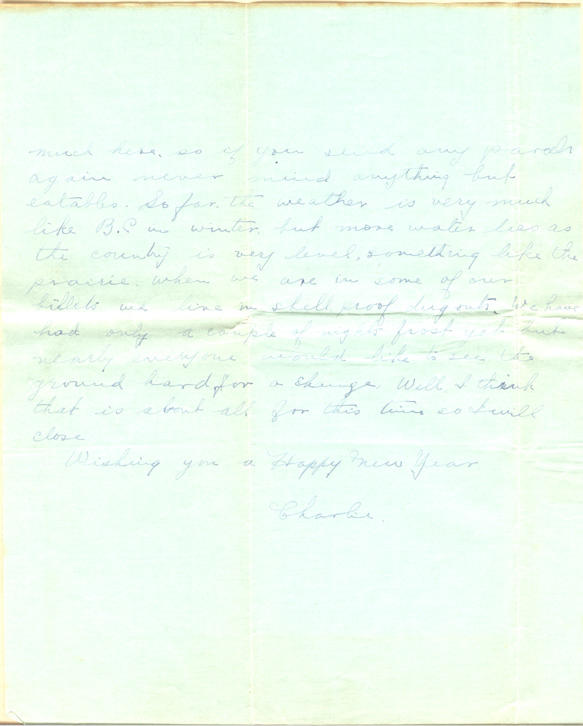 much here. so if you send any parcels
again never mind anything but
eatables. So far the weather is very much
like B.C in winter, but more water lies as
the country is very level, something like the
prairie. When we are in some of our
billets we live in shell proof dugouts. We have
had only a couple of nights frost yet but
nearly everyone would like to see the
ground hard for a change. Well I think
that is about all for this time so I will
close
Wishing you a Happy New Year
Charlie.